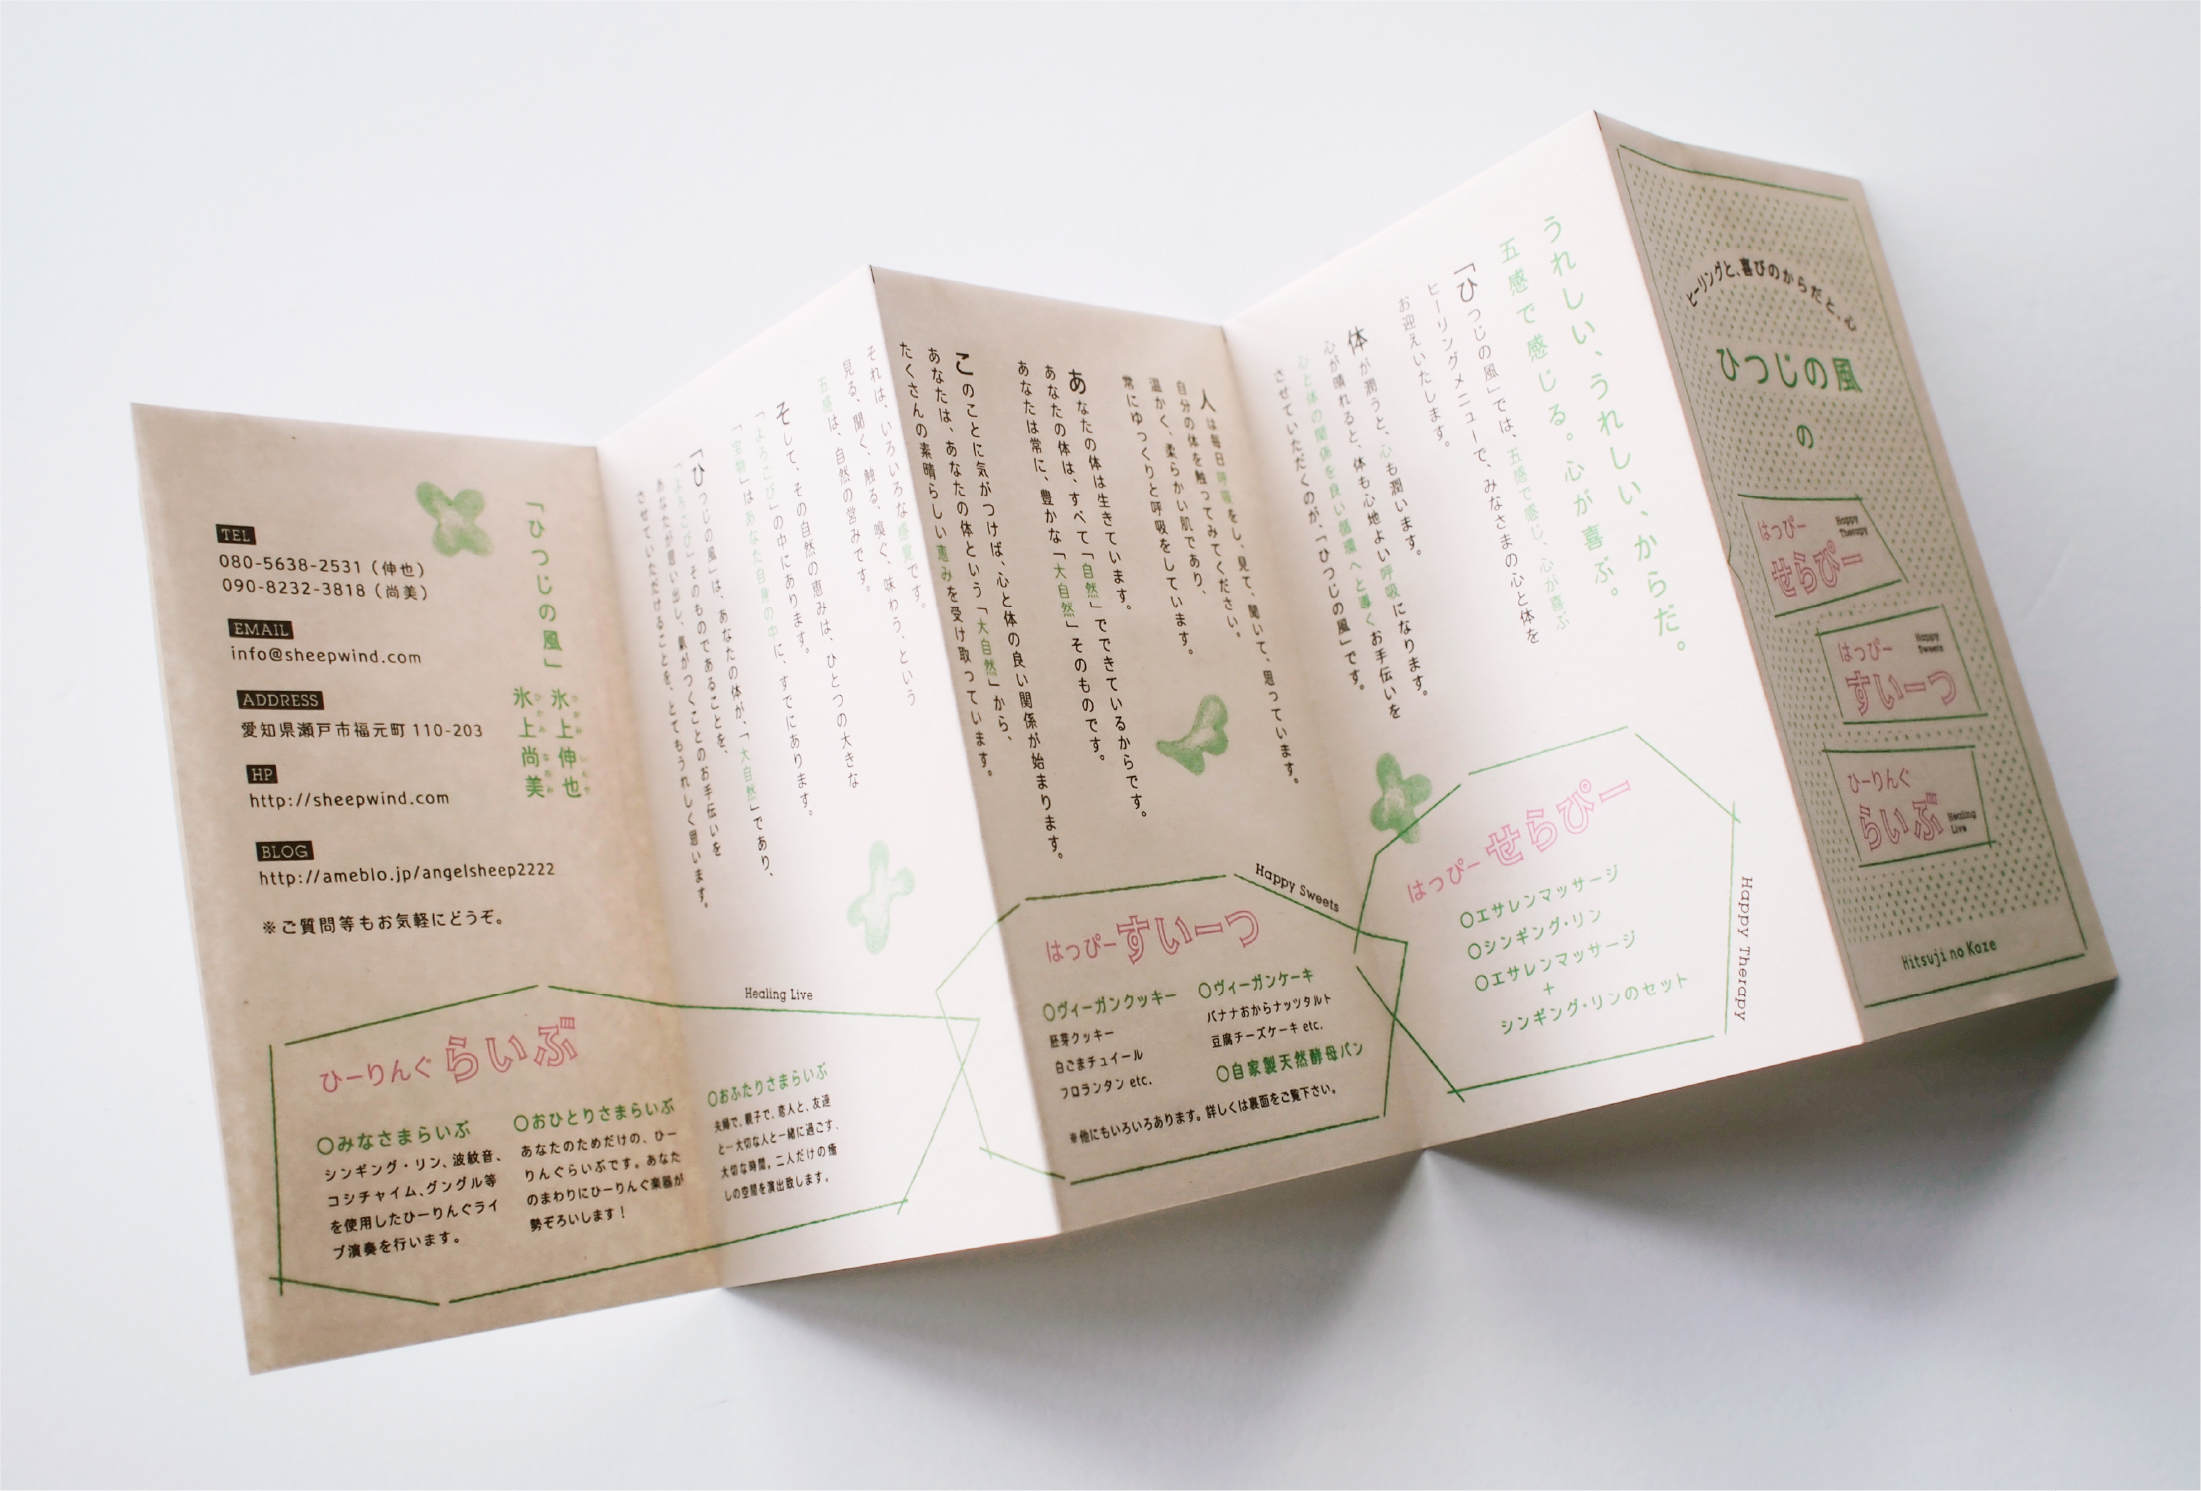 ヒーリングと、喜びのからだと、む
ひつじの風
の
はっぴー
せらぴー
Happy
Therapy
はっぴー
すいーつ
Happy
Sweets
ひーりんぐ
らいぶ
Healing
Live
Hitsuji no Kaze
うれしい、うれしい、からだ。
五感で感じる。心が喜ぶ。
「ひつじの風」では、五感で感じ、心が喜ぶ
ヒーリングメニューで、みなさまの心と体を
お迎えいたします。
体が潤うと、心も潤います。
心が晴れると、体も心地よい呼吸になります。
心と体の関係を良い循環へと導くお手伝いを
させていただくのが、「ひつじの風」です。
はっぴーせらぴー
Happy Therapy
○エサレンマッサージ
○シンギング・リン
○エサレンマッサージ
+
シンギング・リンのセット
人は毎日呼吸をし、見て、聞いて、思っています。
自分の体を触ってみてください。
温かく、柔らかい肌であり、
常にゆっくりと呼吸をしています。
あなたの体は生きています。
あなたの体は、すべて「自然」でできているからです。
あなたは常に、豊かな「大自然」そのものです。
このことに気がつけば、心と体の良い関係が始まります。
あなたは、あなたの体という「大自然」から、
たくさんの素晴らしい恵みを受け取っています。
はっぴーすいーつ
Happy Sweets
○ヴィーガンクッキー
胚芽クッキー
白ごまチュイール
フロランタン etc.
○ヴィーガンケーキ
バナナおからナッツタルト
豆腐チーズケーキ etc.
○自家製天然酵母パン
※他にもいろいろあります。詳しくは裏面をご覧下さい。
それは、いろいろな感覚です。
見る、聞く、触る、嗅ぐ、味わう、という
五感は、自然の営みです。
そして、その自然の恵みは、ひとつの大きな
「よろこび」の中にあります。
「宝物」はあなた自身の中に、すでにあります。
「ひつじの風」は、あなたの体が、「大自然」であり、
「よろこび」そのものであることを、
あなたが思い出し、氣がつくことのお手伝いを
させていただけることを、とてもうれしく思います。
「ひつじの風」
氷上伸也
ひかみ しんや
氷上尚美
ひかみ なおみ
TEL
080-5638-2531（伸也）
090-8232-3818（尚美）
EMAIL
info@sheepwind.com
ADDRESS
愛知県瀬戸市福元町 110-203
HP
http://sheepwind.com
BLOG
http://ameblo.jp/angelsheep2222
※ご質問等もお気軽にどうぞ。
ひーりんぐらいぶ
Healing Live
○みなさまらいぶ
シンギング・リン、波紋音、
コシチャイム、グングル等
を使用したひーりんぐライ
ブ演奏を行います。
○おひとりさまらいぶ
あなたのためだけの、ひー
りんぐらいぶです。あなた
のまわりにひーりんぐ楽器が
勢ぞろいします！
○おふたりさまらいぶ
夫婦で、親子で、恋人と、友達
と…大切な人と一緒に過ごす、
大切な時間。二人だけの癒
しの空間を演出致します。